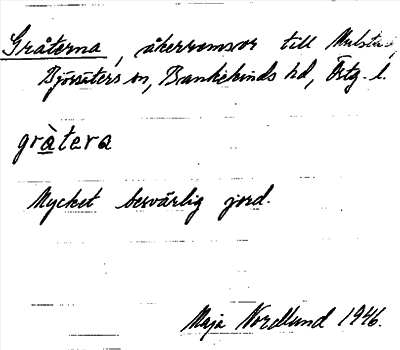 Gråterna, åkerremsor till
Björsäters sn, Bankekinds hd, Östg. l.
gràtera
Mycket besvärlig jord.
Maja Nordlund 1946.